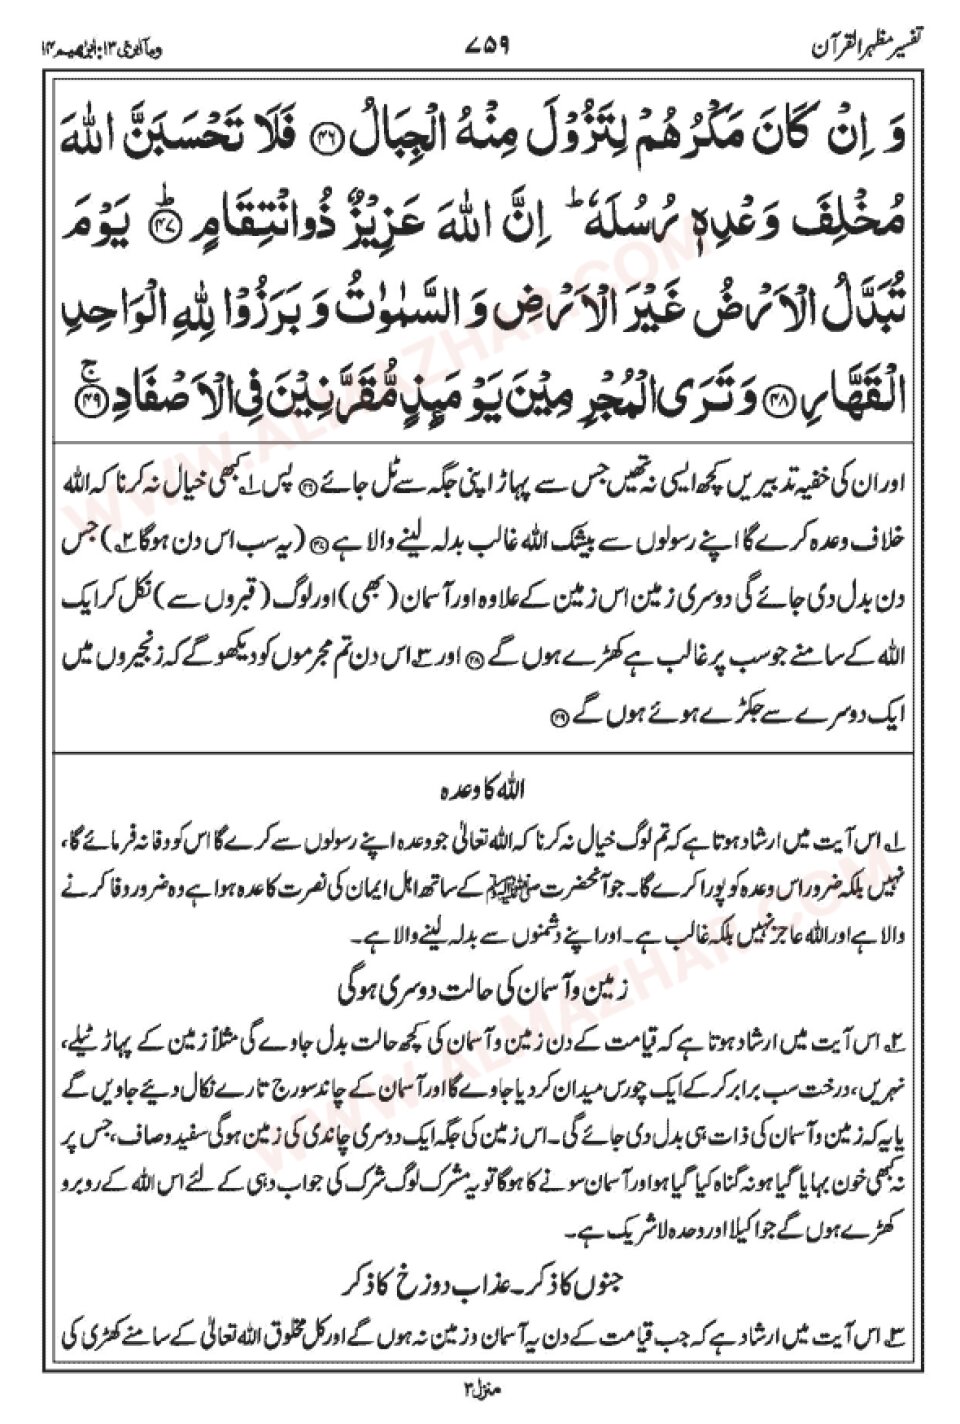 تفسیر مظہر القرآن
۷۵۹
ومآ ابرئ ۱۳: ابرٰھیم ۱۴
وَ اِنۡ كَانَ مَكۡرُهُمۡ لِتَزُوۡلَ مِنۡهُ الۡجِبَالُ ﴿۴۶﴾ فَلَا تَحۡسَبَنَّ اللّٰهَ
مُخۡلِفَ وَعۡدِهٖ رُسُلَهٗ ؕ اِنَّ اللّٰهَ عَزِيۡزٌ ذُو انۡتِقَامٍ ﴿ؕ۴۷﴾ يَوۡمَ
تُبَدَّلُ الۡاَرۡضُ غَيۡرَ الۡاَرۡضِ وَ السَّمٰوٰتُ وَ بَرَزُوۡا لِلّٰهِ الۡوَاحِدِ
الۡقَهَّارِ ﴿۴۸﴾ وَ تَرَى الۡمُجۡرِمِيۡنَ يَوۡمَئِذٍ مُّقَرَّنِيۡنَ فِى الۡاَصۡفَادِ ﴿ۚ۴۹﴾
اور ان کی خفیہ تدبیریں کچھ ایسی نہ تھیں جس سے پہاڑ اپنی جگہ سے ٹل جائے ﴿۴۶﴾ پس ۱؎ کبھی خیال نہ کرنا کہ اللہ
خلاف وعدہ کرے گا اپنے رسولوں سے بیشک اللہ غالب بدلہ لینے والا ہے ﴿۴۷﴾ (یہ سب اس دن ہوگا ۲؎) جس
دن بدل دی جائے گی دوسری زمین اس زمین کے علاوہ اور آسمان (بھی) اور لوگ (قبروں سے) نکل کر ایک
اللہ کے سامنے جو سب پر غالب ہے کھڑے ہوں گے ﴿۴۸﴾ اور ۳؎ اس دن تم مجرموں کو دیکھو گے کہ زنجیروں میں
ایک دوسرے سے جکڑے ہوئے ہوں گے ﴿۴۹﴾
اللہ کا وعدہ
۱؎ اس آیت میں ارشاد ہوتا ہے کہ تم لوگ خیال نہ کرنا کہ اللہ تعالیٰ جو وعدہ اپنے رسولوں سے کرے گا اس کو وفا نہ فرمائے گا،
نہیں بلکہ ضرور اس وعدہ کو پورا کرے گا۔ جو آنحضرت ﷺ کے ساتھ اہل ایمان کی نصرت کا عدہ ہوا ہے وہ ضرور وفا کرنے
والا ہے اور اللہ عاجز نہیں بلکہ غالب ہے۔ اور اپنے دشمنوں سے بدلہ لینے والا ہے۔
زمین و آسمان کی حالت دوسری ہوگی
۲؎ اس آیت میں ارشاد ہوتا ہے کہ قیامت کے دن زمین و آسمان کی کچھ حالت بدل جاوے گی مثلاً زمین کے پہاڑ ٹیلے،
نہریں، درخت سب برابر کر کے ایک چورس میدان کر دیا جاوے گا اور آسمان کے چاند سورج تارے نکال دیئے جاویں گے
یا یہ کہ زمین و آسمان کی ذات ہی بدل دی جائے گی۔ اس زمین کی جگہ ایک دوسری چاندی کی زمین ہوگی سفید و صاف، جس پر
نہ کبھی خون بہایا گیا ہو نہ گناہ کیا گیا ہو اور آسمان سونے کا ہوگا تو یہ مشرک لوگ شرک کی جواب دہی کے لئے اس اللہ کے روبرو
کھڑے ہوں گے جو اکیلا اور وحدہ لا شریک ہے۔
جنوں کا ذکر۔ عذاب دوزخ کا ذکر
۳؎ اس آیت میں ارشاد ہے کہ جب قیامت کے دن یہ آسمان و زمین نہ ہوں گے اور کل مخلوق اللہ تعالیٰ کے سامنے کھڑی کی
منزل ۳
WWW.ALMAZHAR.COM
WWW.ALMAZHAR.COM